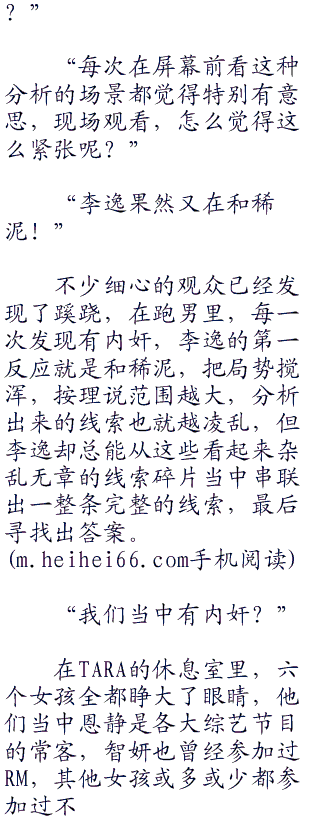 ？”
“每次在屏幕前看这种
分析的场景都觉得特别有意
思，现场观看，怎么觉得这
么紧张呢？”
“李逸果然又在和稀
泥！”
不少细心的观众已经发
现了蹊跷，在跑男里，每一
次发现有内奸，李逸的第一
反应就是和稀泥，把局势搅
浑，按理说范围越大，分析
出来的线索也就越凌乱，但
李逸却总能从这些看起来杂
乱无章的线索碎片当中串联
出一整条完整的线索，最后
寻找出答案。
(m.heihei66.com手机阅读)
“我们当中有内奸？”
在TARA的休息室里，六
个女孩全都睁大了眼睛，他
们当中恩静是各大综艺节目
的常客，智妍也曾经参加过
RM，其他女孩或多或少都参
加过不